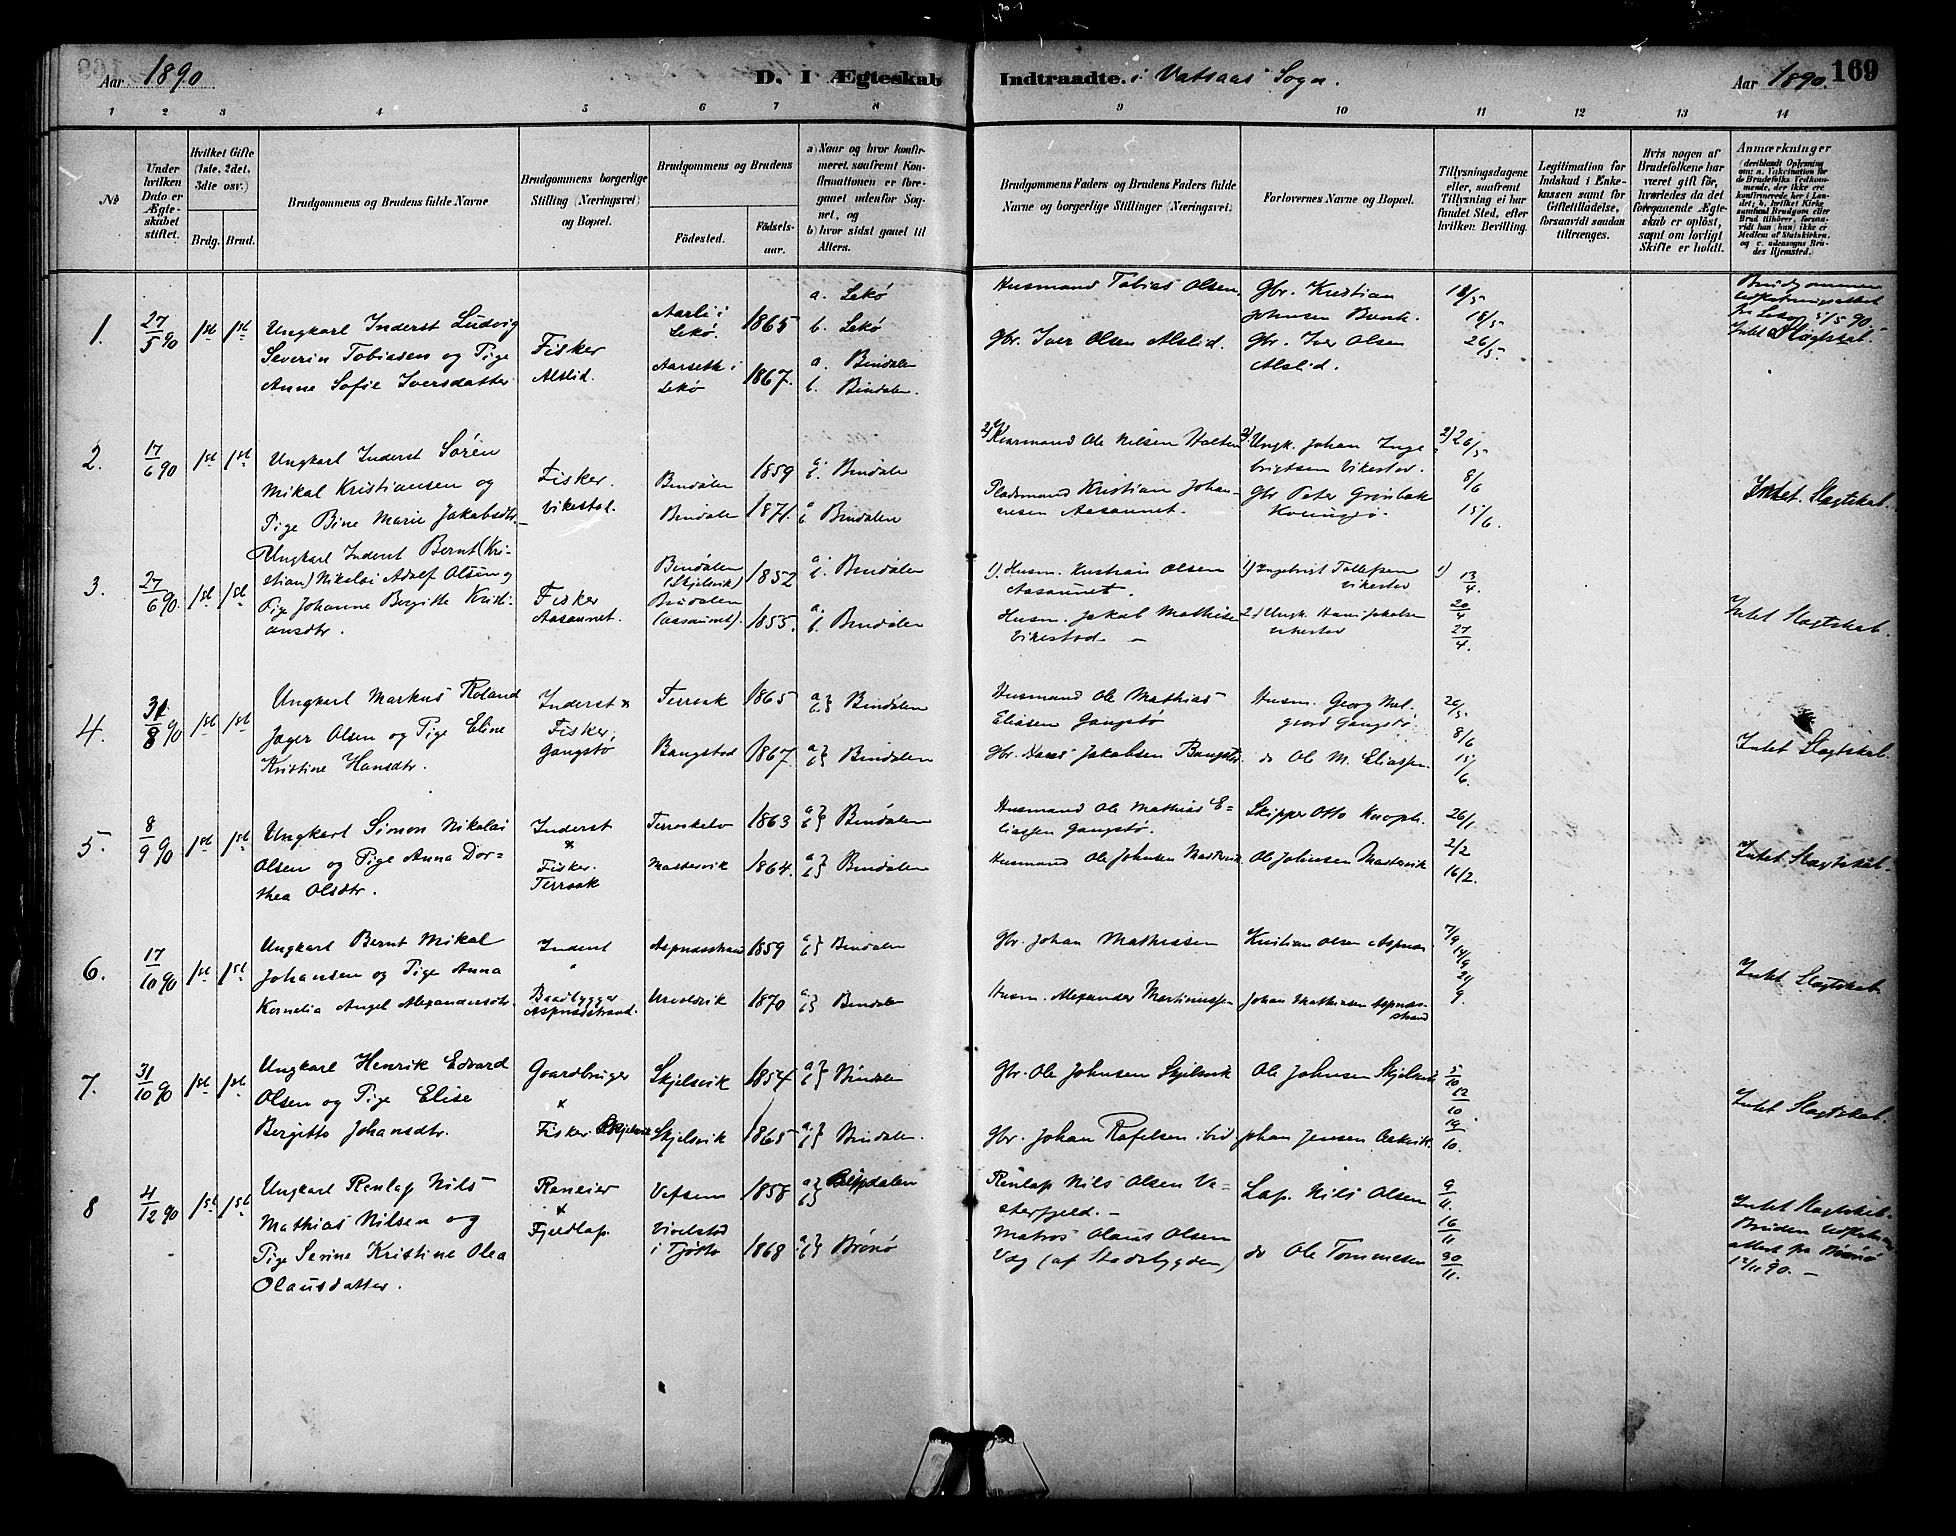 Aar 1890
D. I Ægteskab
Indtraadte. i Vatsaas Sogn.
Aar 1890. 169
1 2 3 4 5 6 7 8 9 10 11 12 13 14
No
Under
hvilken
Dato er
Ægte-
skabet
stiftet.
Hvilket Gifte
(1ste, 2det,
3die osv.)
Brdg. Brud.
Brudgommens og Brudens fulde Navne
Brudgommens borgerlige
Stilling (Næringsvei)
og Bopæl.
Brudgommens og Brudens
Fødested.
Fødsels-
aar.
a) Naar og hvor konfir-
meret, saafremt Kon-
firmationen er fore-
gaaet udenfor Sog-
net, og
b) hvor sidst gaaet til
Alters.
Brudgommens Faders og Brudens Faders fulde
Navne og borgerlige Stillinger (Næringsvei)
Forlovernes Navne og Bopæl.
Tillysningsdagene
eller, saafremt
Tillysning ei har
fundet Sted, efter
hvilken Bevilling.
Legitimation for
Indskud i Enke-
kassen samt for
Giftetilladelse,
forsaavidt saadan
tiltrænges.
Hvis nogen af
Brudefolkene har
været gift før,
hvorledes da det
foregaaende Ægte-
skab er opløst,
samt om lovligt
Skifte er holdt.
Anmærkninger
(deriblandt Oplysning
om: a. Vakcination for
de Brudefolks Vedkom-
mende, der ikke ere
konfirmerede her i Lan-
det; b. hvilket Kirke-
samfund Brudgom eller
Brud tilhører, forsaa-
vidt han (hun) ikke er
Medlem af Statskirken,
og c. udensogns Bru-
des Hjemsted.
1. 27/5 90 1ste 1ste
Ungkarl Inderst Ludvig
Severin Tobiassen og Pige
Anne Sofie Iversdatter
Fisker
Alslid.
Aarli i
Lekø. 1865
Aarseth i
Lekø 1867.
a. Lekø
b. Lekø
a. Bindalen
b. Bindalen.
Husmand Tobias Olsen,
Gbr. Iver Olsen Alslid.
Gbr. Kristian
Johnsen
Gbr. Iver Olsen
Alslid.
18/5
26/5
Brudgommens
fra Lekø 5/5 90.
Intet Slægtskab.
2. 17/6 90 1ste 1ste
Ungkarl Inderst Søren
Mikal Kristiansen og
Pige Bine Marie Jakobsdtr.
Fisker.
Vikestad.
Bindalen 1859
Bindalen 1871.
a. b. Bindalen
a b Bindalen
2) Kvarmand Ole Nilsen Holten
Pladsmand Kristian Johan-
nesen Aasaunet.
2) Ungk. Johan Inge
brigtsen Vikestad.
Gbr Peter Grønbak
2) 26/5
8/6
15/6.
Intet Slægtskab.
3. 27/6 90. 1ste 1ste
Ungkarl Inderst Bernt (Kri-
stian) Nikolai Adolf Olsen og
Pige Johanne Bergitte Kristi-
ansdtr.
Fisker
Aasaunet.
Bindalen
(Skjelsvik) 1852
Bindalen
(Aasaunet). 1855.
a. b. Bindalen
a. b. Bindalen
1). Husm. Kristian Olsen
Aasaunet.
Husm. Jakob Mathisen
Vikestad. —
1) Ingebrigt Tollefsen
Vikestad
2) Ungk. Hans Jakobsen
Vikestad
1) 13/4.
20/4
27/4
Intet Slægtskab.
4. 31/8 90 1ste 1ste
Ungkarl Markus Roland
Jæger Olsen og Pige Eline
Kristine Hansdtr.
Inderst &
Fisker,
Gangstø
Terraak 1865
Bangstad 1867.
a b Bindalen
a b Bindalen
Husmand Ole Mathias
Eliasen Gangstø
Gbr. Hans Jakobsen Bangstad.
Husm. Georg Mel-
Gangstø.
do Ole M. Eliassen.
26/5.
8/6
15/6.
Intet Slægtskab.
5. 8/9 90 1ste 1ste
Ungkarl Simon Nikolai
Olsen og Pige Anna Dor-
thea Olsdtr.
Inderst
&
Fisker.
Terraak
Terraakelv 1863
Mastervik 1864.
a b Bindalen
a b Bindalen
Husmand Ole Mathias E-
liassen Gangstø.
Husmand Ole Johnsen Mastervik
Skipper Otto Knoph.
Ole Johnsen Mastervik
26/1.
2/2
16/2.
Intet Slægtskab.
6. 17/10 90 1ste 1ste
Ungkarl Bernt Mikal
Johansen og Pige Anna
Kornelia Angel Alexandersdtr.
Inderst
Baadbygger
Aspnæsstrand.
Aspnæsstrand 1859
1870
a b Bindalen
a b Bindalen
Gbr. Johan Mathissen
Husm. Alexander Martinussen
Kristian Olsen Aspnæs
Johan Mathisen Aspnæs-
strand
7/9
14/9
21/9.
Intet Slægtskab.
7. 31/10 90 1ste 1ste
Ungkarl Henrik Edvard
Olsen og Pige Elise
Bergitte Johansdtr.
Gaardbruger
&
Fisker. Skjelsvik
Skjelsvik 1854
Skjelsvik 1865
a b Bindalen
a b Bindalen.
Gbr. Ole Johnsen Skjelsvik
Gbr. Johan Rafelsen ibid
Ole Johnsen Skjelsvik
Johan Jensen
5/10
12/10
19/10.
Intet Slægtskab.
8 4/12 90 1ste 1ste
Ungkarl Renlap Nils
Mathias Nilsen og
Pige Serine Kristine Olea
Olausdatter.
Reneier
&
Fjeldlap.
Vefsen 1858
Vivelstad
i Tjøtto 1868
a b Bindalen
a b Brønø
Renlap Nils Olsen Ve-
sterfjeld. —
Matros Olaus Olsen
Vaag (af Stadsbygden)
Lap. Nils Olsen
do Ole Tommesen
9/11.
16/11
30/11.
Intet Slægtskab.
Bruden
attest fra Brønø
12/11 90. —